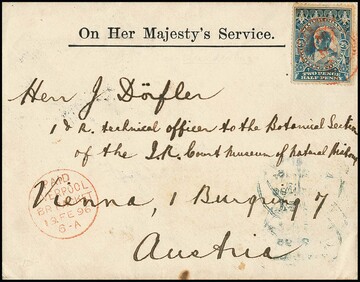 On Her Majesty's Service.
TWO PENCE
HALF PENNY
Herr J. Dörfler
I & R. technical officer to the Botanical Section
of the I.R. Court Museum of Natural History
Vienna, 1 Burgring 7
Austria
PAID
LIVERPOOL
BR PACKET
FE 96